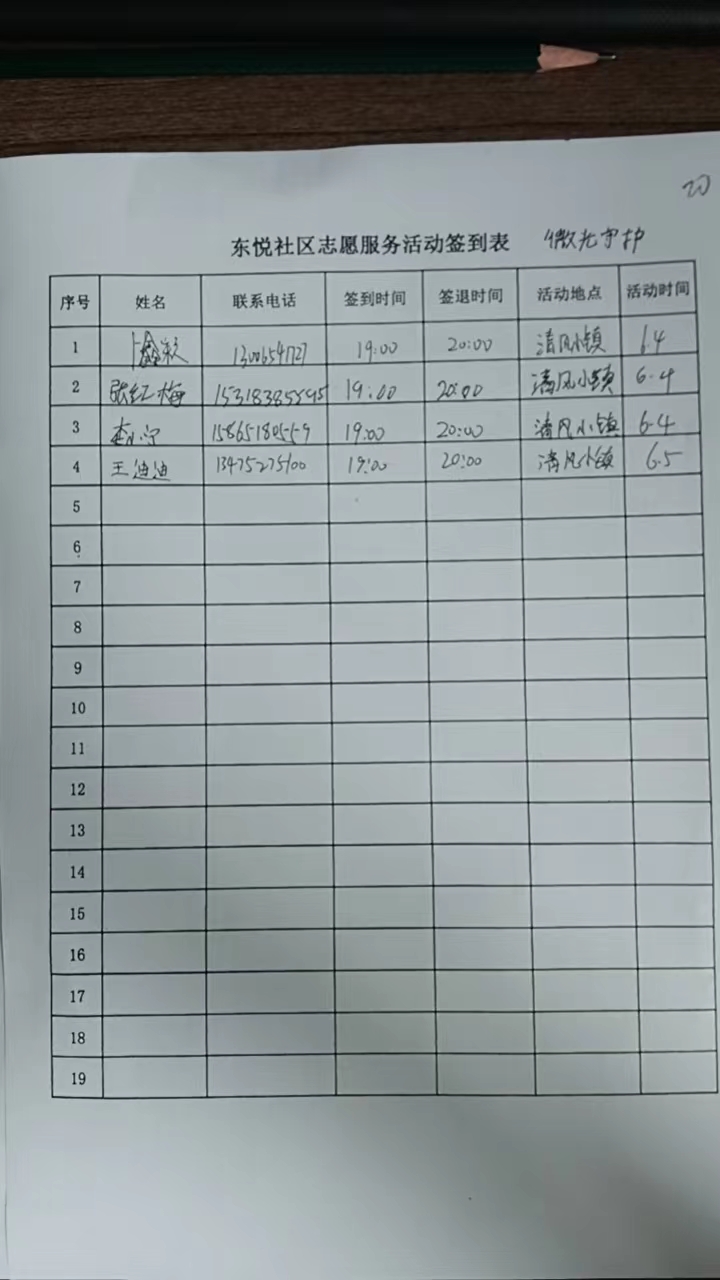 20
东悦社区志愿服务活动签到表 微光守护
序号 姓名 联系电话 签到时间 签退时间 活动地点 活动时间
1 19:00 20:00 清风小镇 6.4
2 张红梅 19:00 20:00 清风小镇 6.4
3 李小宁 19:00 20:00 清风小镇 6.4
4 王迪迪 13475275100 19:00 20:00 清风小镇 6.5
5
6
7
8
9
10
11
12
13
14
15
16
17
18
19